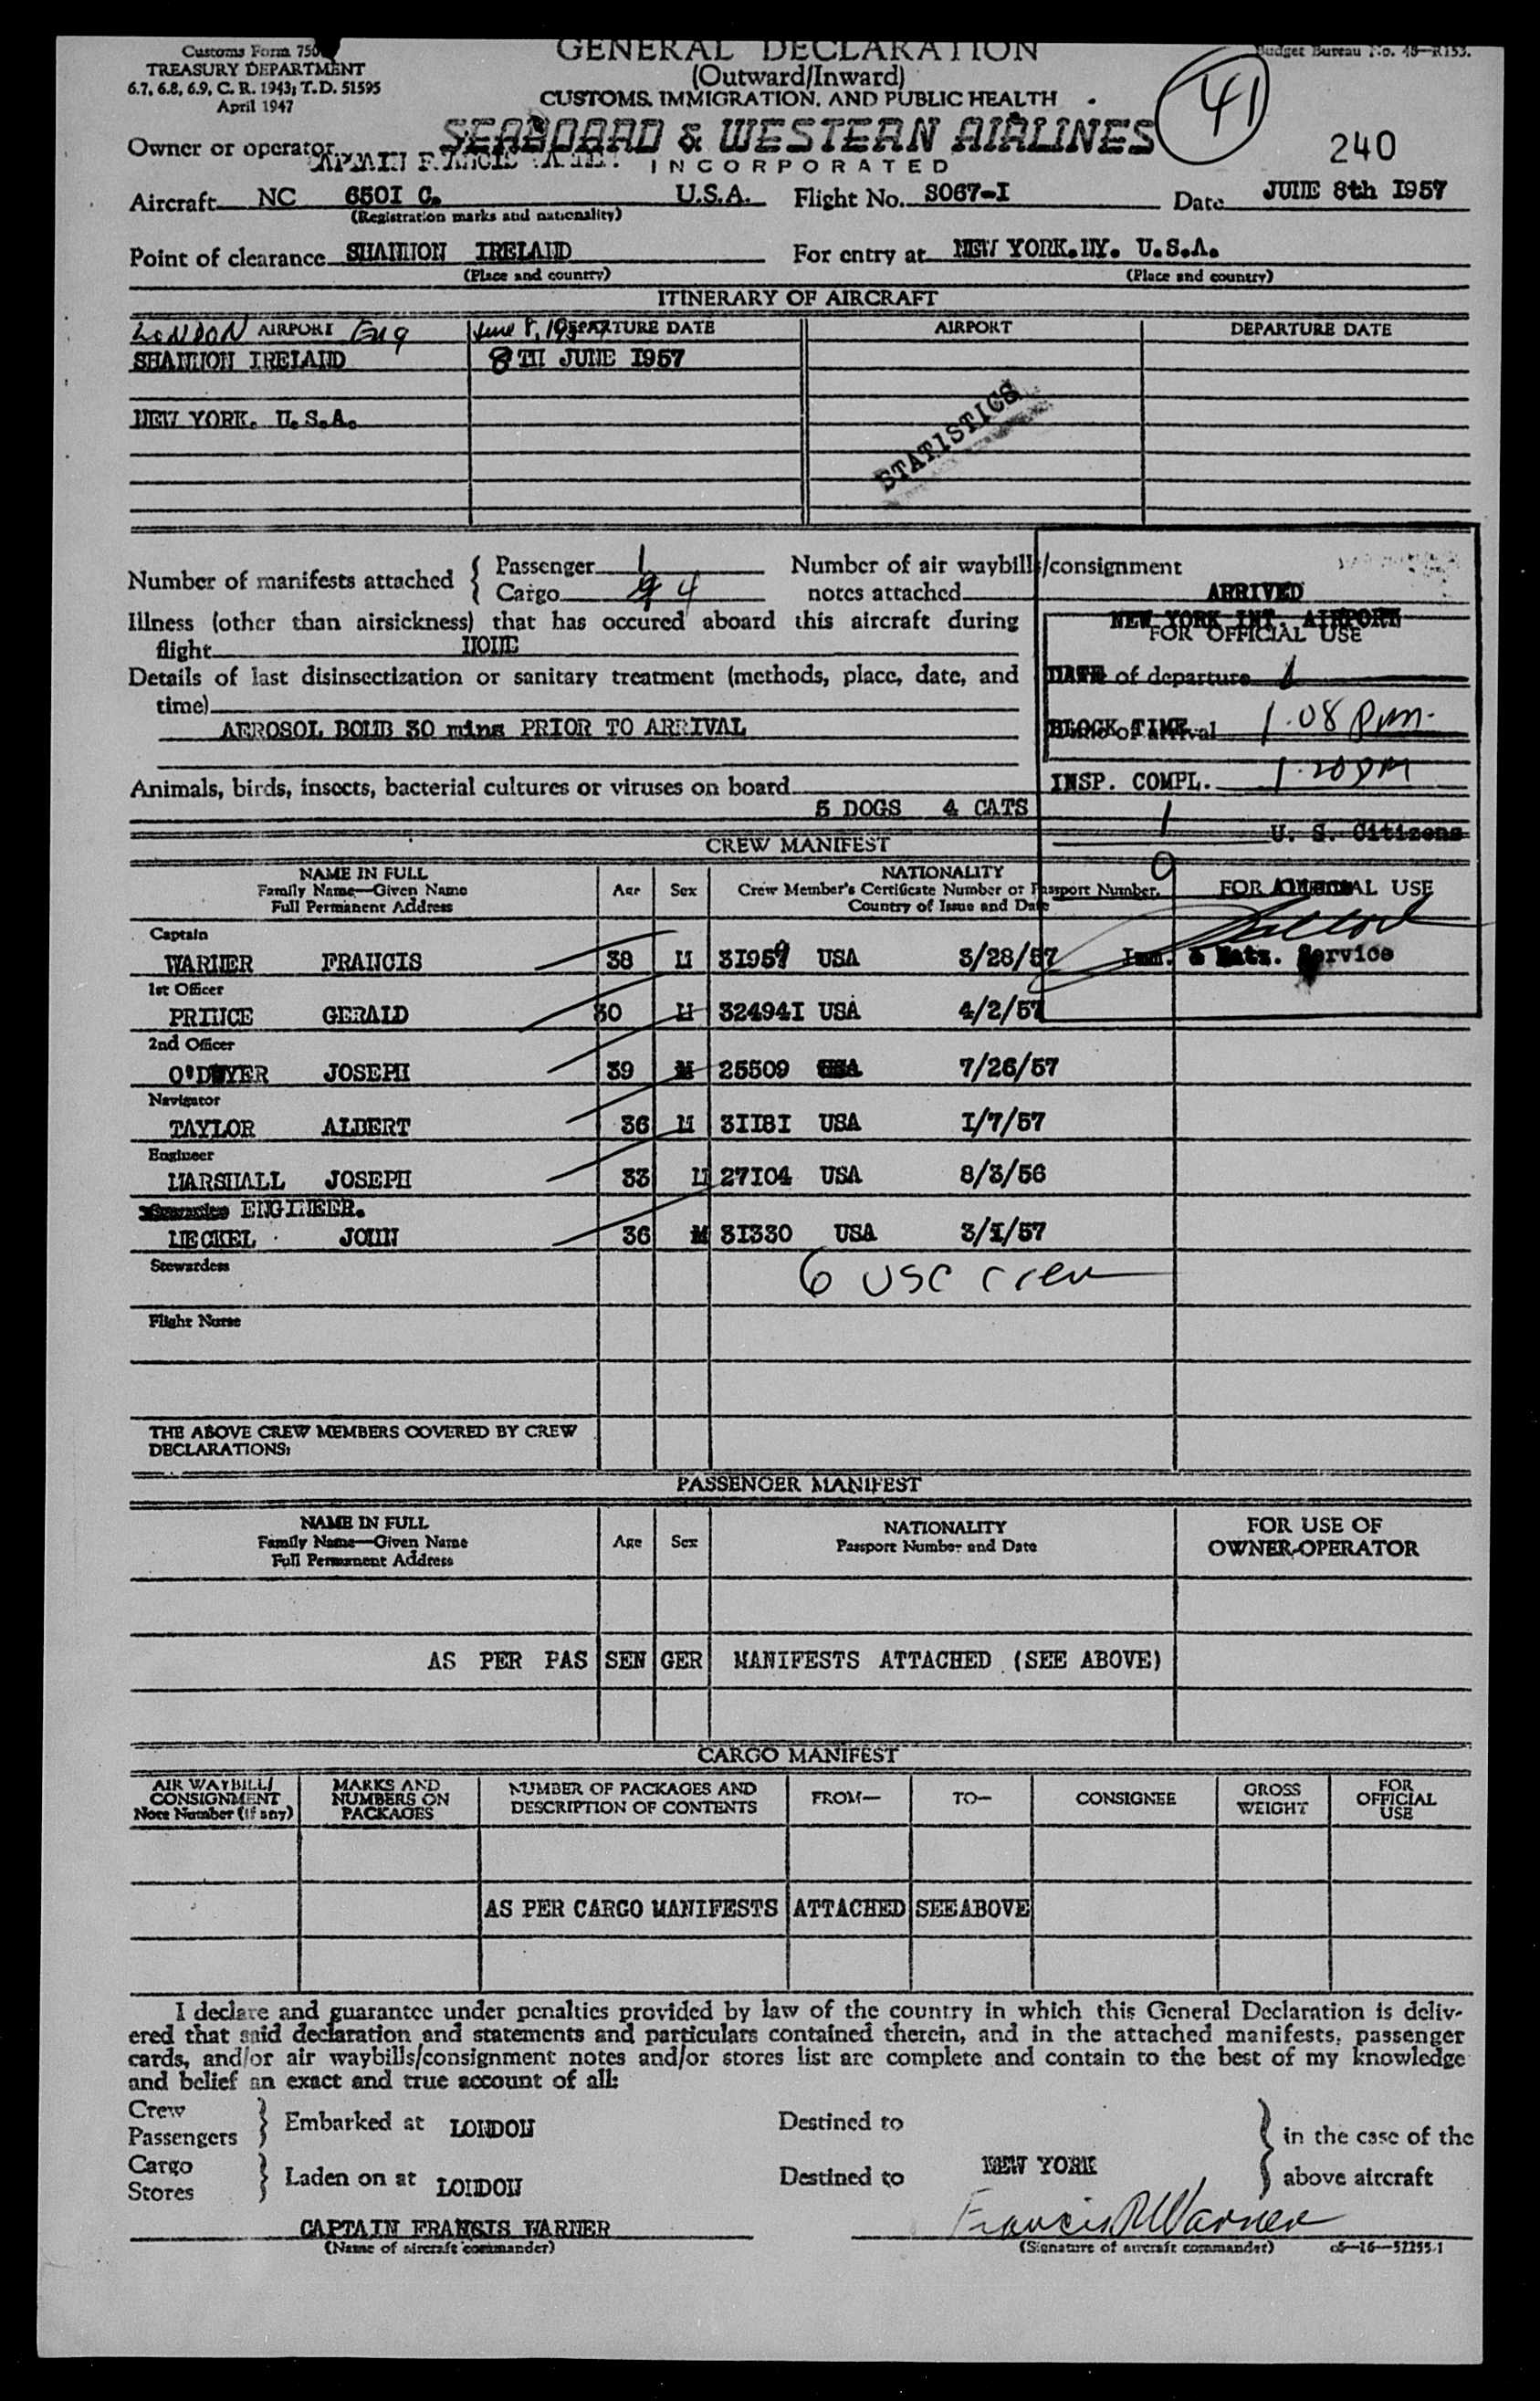 Customs Form 750
TREASURY DEPARTMENT
6.7, 6.8, 6.9, C. R. 1943; T.D. 51595
April 1947
GENERAL DECLARATION
(Outward/Inward)
CUSTOMS, IMMIGRATION, AND PUBLIC HEALTH
Budget Bureau No. 48—R153.
41
240
Owner or operator
SEABOARD & WESTERN AIRLINES
INCORPORATED
Aircraft NC 650I C. U.S.A. Flight No. S067-I Date JUNE 8th I957
(Registration marks and nationality)
Point of clearance SHANNON IRELAND For entry at NEW YORK.NY. U.S.A.
(Place and country) (Place and country)
ITINERARY OF AIRCRAFT
AIRPORT DEPARTURE DATE AIRPORT DEPARTURE DATE
LONDON Eng June 8, 1957
SHANNON IRELAND 8TH JUNE I957
NEW YORK. U.S.A.
STATISTICS
Number of manifests attached { Passenger 1
Cargo 4
Number of air waybills/consignment
notes attached
Illness (other than airsickness) that has occured aboard this aircraft during
flight NONE
Details of last disinsectization or sanitary treatment (methods, place, date, and
time)
AEROSOL BOMB 30 mins PRIOR TO ARRIVAL
Animals, birds, insects, bacterial cultures or viruses on board
5 DOGS 4 CATS
ARRIVED
NEW YORK INT. AIRPORT
FOR OFFICIAL USE
DATE of departure
BLOCK TIME 1.08 pm.
INSP. COMPL. 1.20 PM
1 U. S. Citizens
0
Imm. & Natz. Service
CREW MANIFEST
NAME IN FULL
Family Name—Given Name
Full Permanent Address
Age Sex
NATIONALITY
Crew Member's Certificate Number or Passport Number,
Country of Issue and Date
FOR OFFICIAL USE
Captain
WARNER FRANCIS 38 M 31959 USA 3/28/57
1st Officer
PRINCE GERALD 30 M 32494I USA 4/2/57
2nd Officer
O'DWYER JOSEPH 39 M 25509 USA 7/26/57
Navigator
TAYLOR ALBERT 36 M 3II8I USA I/7/57
Engineer
MARSHALL JOSEPH 33 M 27I04 USA 8/3/56
ENGINEER.
MECKEL JOHN 36 M 3I330 USA 3/I/57
Stewardess
6 USC crew
Flight Nurse
THE ABOVE CREW MEMBERS COVERED BY CREW
DECLARATIONS:
PASSENGER MANIFEST
NAME IN FULL
Family Name—Given Name
Full Permanent Address
Age Sex
NATIONALITY
Passport Number and Date
FOR USE OF
OWNER-OPERATOR
AS PER PAS SEN GER MANIFESTS ATTACHED (SEE ABOVE)
CARGO MANIFEST
AIR WAYBILL/
CONSIGNMENT
Note Number (if any)
MARKS AND
NUMBERS ON
PACKAGES
NUMBER OF PACKAGES AND
DESCRIPTION OF CONTENTS
FROM— TO— CONSIGNEE
GROSS
WEIGHT
FOR
OFFICIAL
USE
AS PER CARGO MANIFESTS ATTACHED SEE ABOVE
I declare and guarantee under penalties provided by law of the country in which this General Declaration is deliv-
ered that said declaration and statements and particulars contained therein, and in the attached manifests, passenger
cards, and/or air waybills/consignment notes and/or stores list are complete and contain to the best of my knowledge
and belief an exact and true account of all:
Crew
Passengers } Embarked at LONDON Destined to
Cargo
Stores } Laden on at LONDON Destined to NEW YORK
} in the case of the
above aircraft
CAPTAIN FRANCIS WARNER Francis R Warner
(Name of aircraft commander) (Signature of aircraft commander) c5—16—52255-1